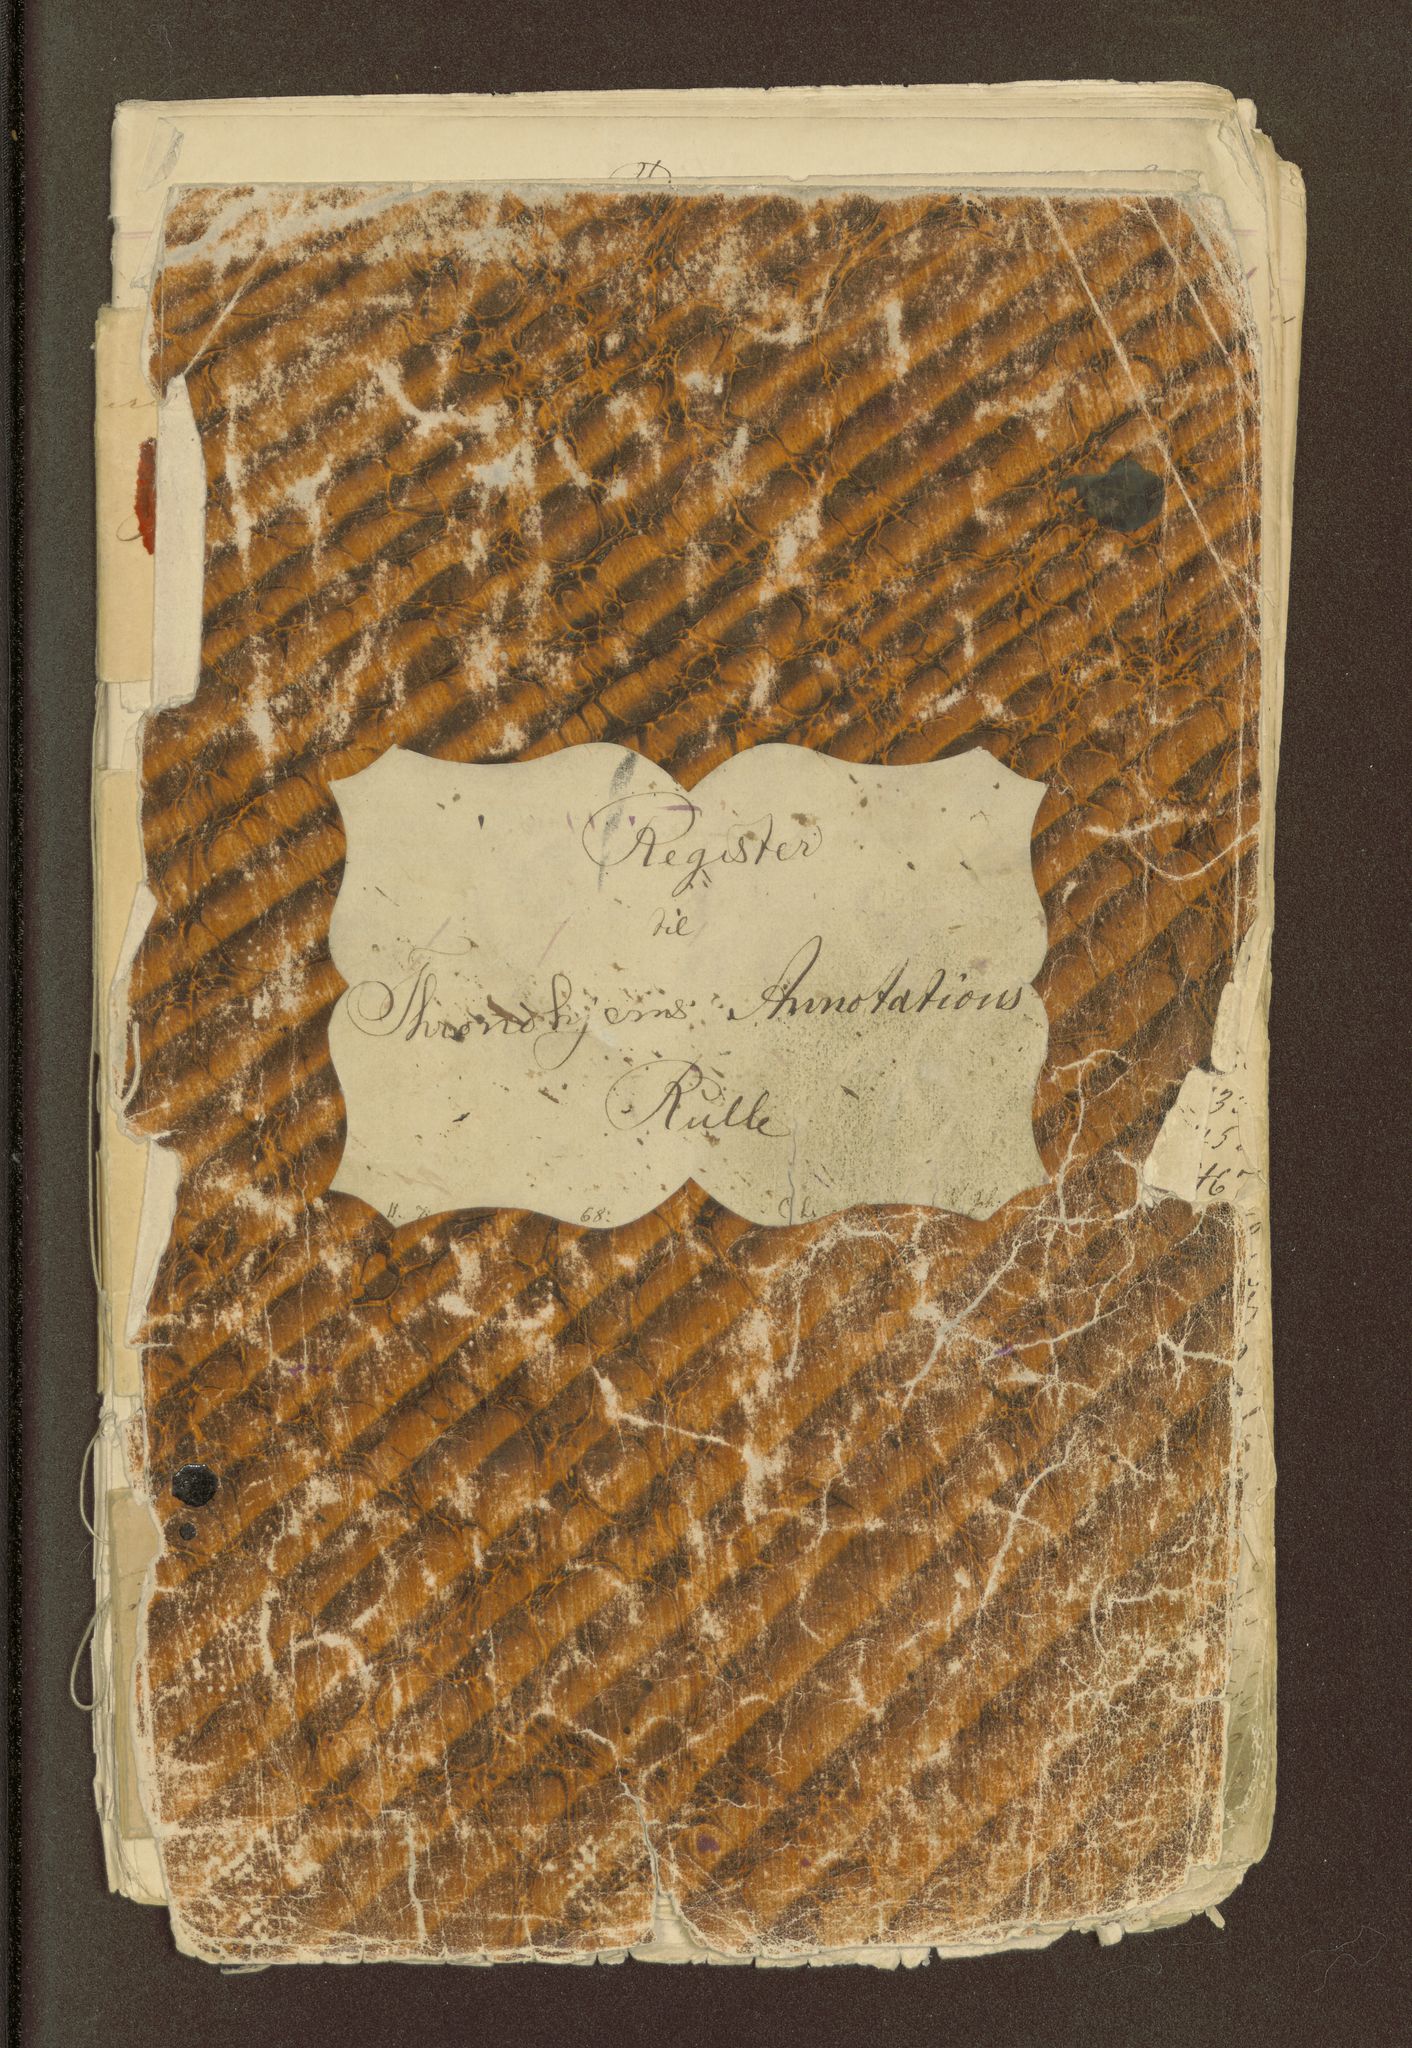 Register
til
Throndhjems Annotations
Rulle
68:
3
15
46